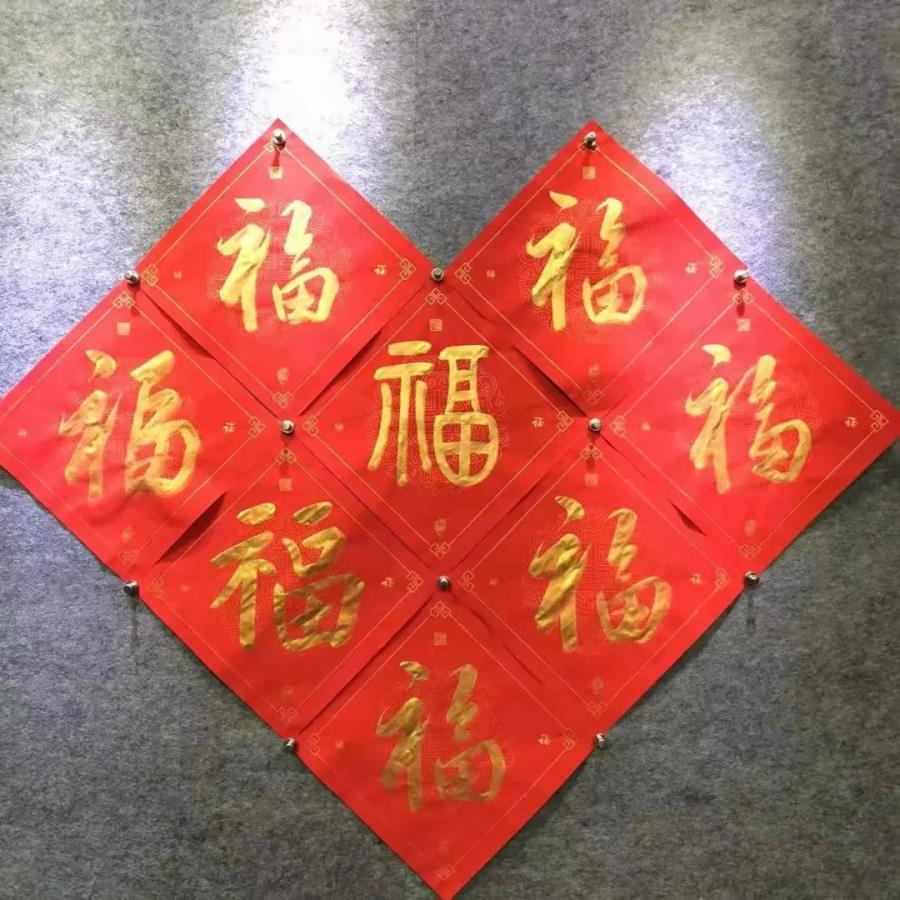 福 福
福 福 福
福 福
福